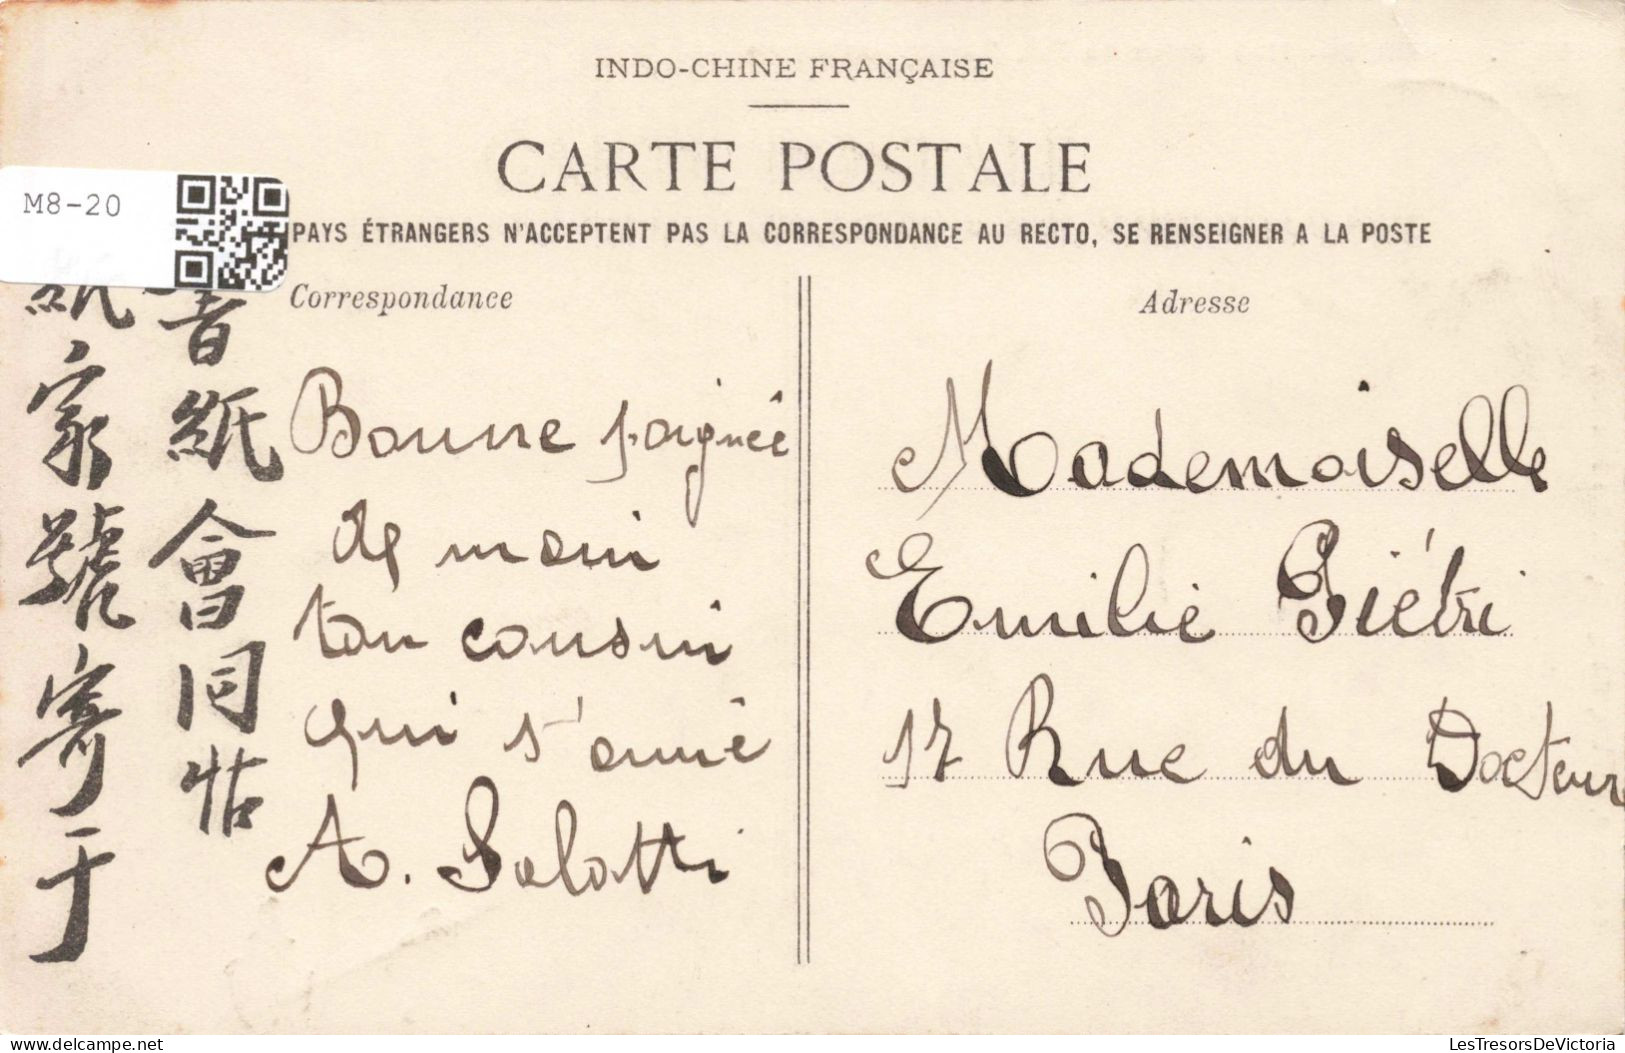 INDO-CHINE FRANÇAISE
CARTE POSTALE
M8-20
PAYS ÉTRANGERS N'ACCEPTENT PAS LA CORRESPONDANCE AU RECTO, SE RENSEIGNER A LA POSTE
書紙會同帖
紙家號寄于
Correspondance
Bonne poignée
de main
ton cousin
qui s'aime
A. Salotti
Adresse
Mademoiselle
Emilie Piétri
17 Rue du Docteur
Paris
LesTresorsDeVictoria
delcampe.net